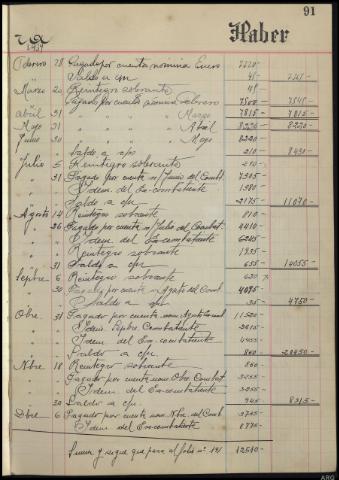 91
Haber
1939
Febrero 28 Pagado por cuenta nomina Enero 7220
" " Saldo a c/n 45 7265
Marzo 20 Reintegro sobrante 48
" " Pagado por cuenta nomina Febrero 7500 7548
Abril 31 " " Marzo 7815 7815
Mayo 31 " " Abril 8226 8226
Junio 30 " " Mayo 8220
" " Saldo a c/n 210 8430
Julio 5 Reintegro sobrante 210
" 31 Pagado por cuenta n/ Junio del Combt 7305
" " Idem del Ex-combatiente 1380
" " Saldo a c/n 2175 11070
Agosto 14 Reintegro sobrante 810
" 26 Pagado por cuenta n/ Julio del Combat. 4410
" " Idem del Ex-combatiente 6245
" " Reintegro sobrante 1935
" 31 Saldo a c/n 655 14055
Sepbre 6 Reintegro sobrante 620
" 30 Pagado por cuenta n/ Agosto del Comb 4095
" " Saldo a c/n 35 4750
Obre 31 Pagado por cuenta nom Agosto Combt 11520
" " Idem Sepbre Combatiente 3615
" " Idem del Ex-combatiente 4455
" " Saldo a c/n 860 20450
Nbre 18 Reintegro sobrante 860
" " Pagado por cuenta nom Obre Combat.
" " Idem del Ex-combatiente
" 30 Saldo a c/n 945 8315
Dbre 6 Pagado por cuenta nom Nbre del Comb 3705
" " Idem del Ex-combatiente
Suma y sigue que pasa al folio nº 191 12510
ARG